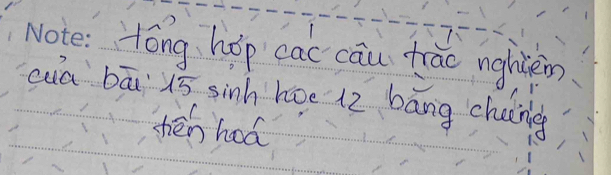 Note: tổng hợp các câu trắc nghiệm
của bài 15 sinh học 12 bằng chứng
tiến hoá